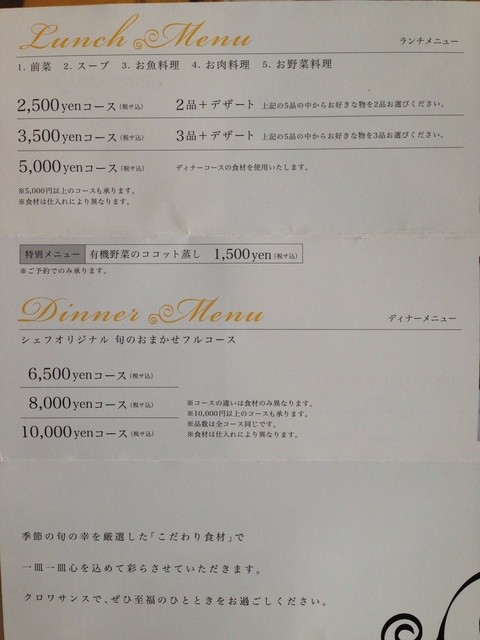 Lunch Menu ランチメニュー
1. 前菜 2. スープ 3. お魚料理 4. お肉料理 5. お野菜料理
2,500yenコース(税サ込) 2品+デザート 上記の5品の中からお好きな物を2品お選びください。
3,500yenコース(税サ込) 3品+デザート 上記の5品の中からお好きな物を3品お選びください。
5,000yenコース(税サ込) ディナーコースの食材を使用いたします。
※5,000円以上のコースも承ります。
※食材は仕入れにより異なります。
特別メニュー 有機野菜のココット蒸し 1,500yen(税サ込)
※ご予約でのみ承ります。
Dinner Menu ディナーメニュー
シェフオリジナル 旬のおまかせフルコース
6,500yenコース(税サ込)
8,000yenコース(税サ込)
10,000yenコース(税サ込)
※コースの違いは食材のみ異なります。
※10,000円以上のコースも承ります。
※品数は全コース同じです。
※食材は仕入れにより異なります。
季節の旬の幸を厳選した「こだわり食材」で
一皿一皿心を込めて彩らさせていただきます。
クロワサンスで、ぜひ至福のひとときをお過ごしください。